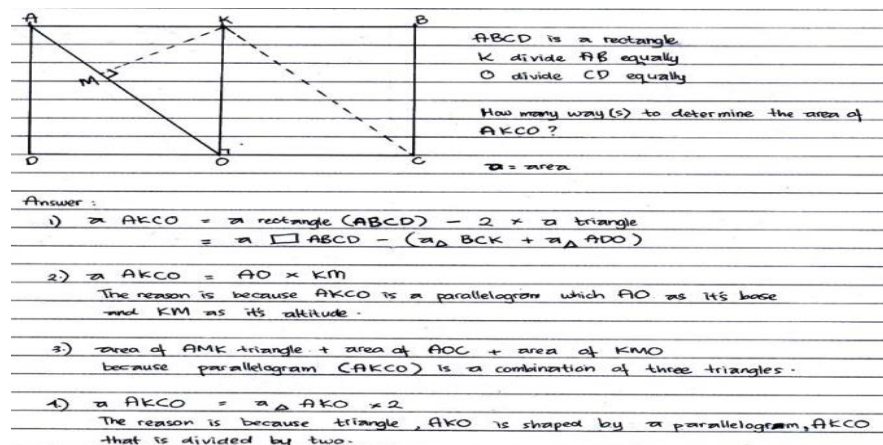 A K B
M
D O C
ABCD is a rectangle
K divide AB equally
O divide CD equally
How many way(s) to determine the area of
AKCO ?
a = area
Answer :
1) a AKCO = a rectangle (ABCD) - 2 x a triangle
= a ▭ ABCD - (a△ BCK + a△ ADO)
2.) a AKCO = AO x KM
The reason is because AKCO is a parallelogram which AO as it's base
and KM as it's altitude.
3.) area of AMK triangle + area of AOC + area of KMO
because parallelogram (AKCO) is a combination of three triangles.
4.) a AKCO = a△ AKO x2
The reason is because triangle, AKO is shaped by a parallelogram, AKCO
that is divided by two.